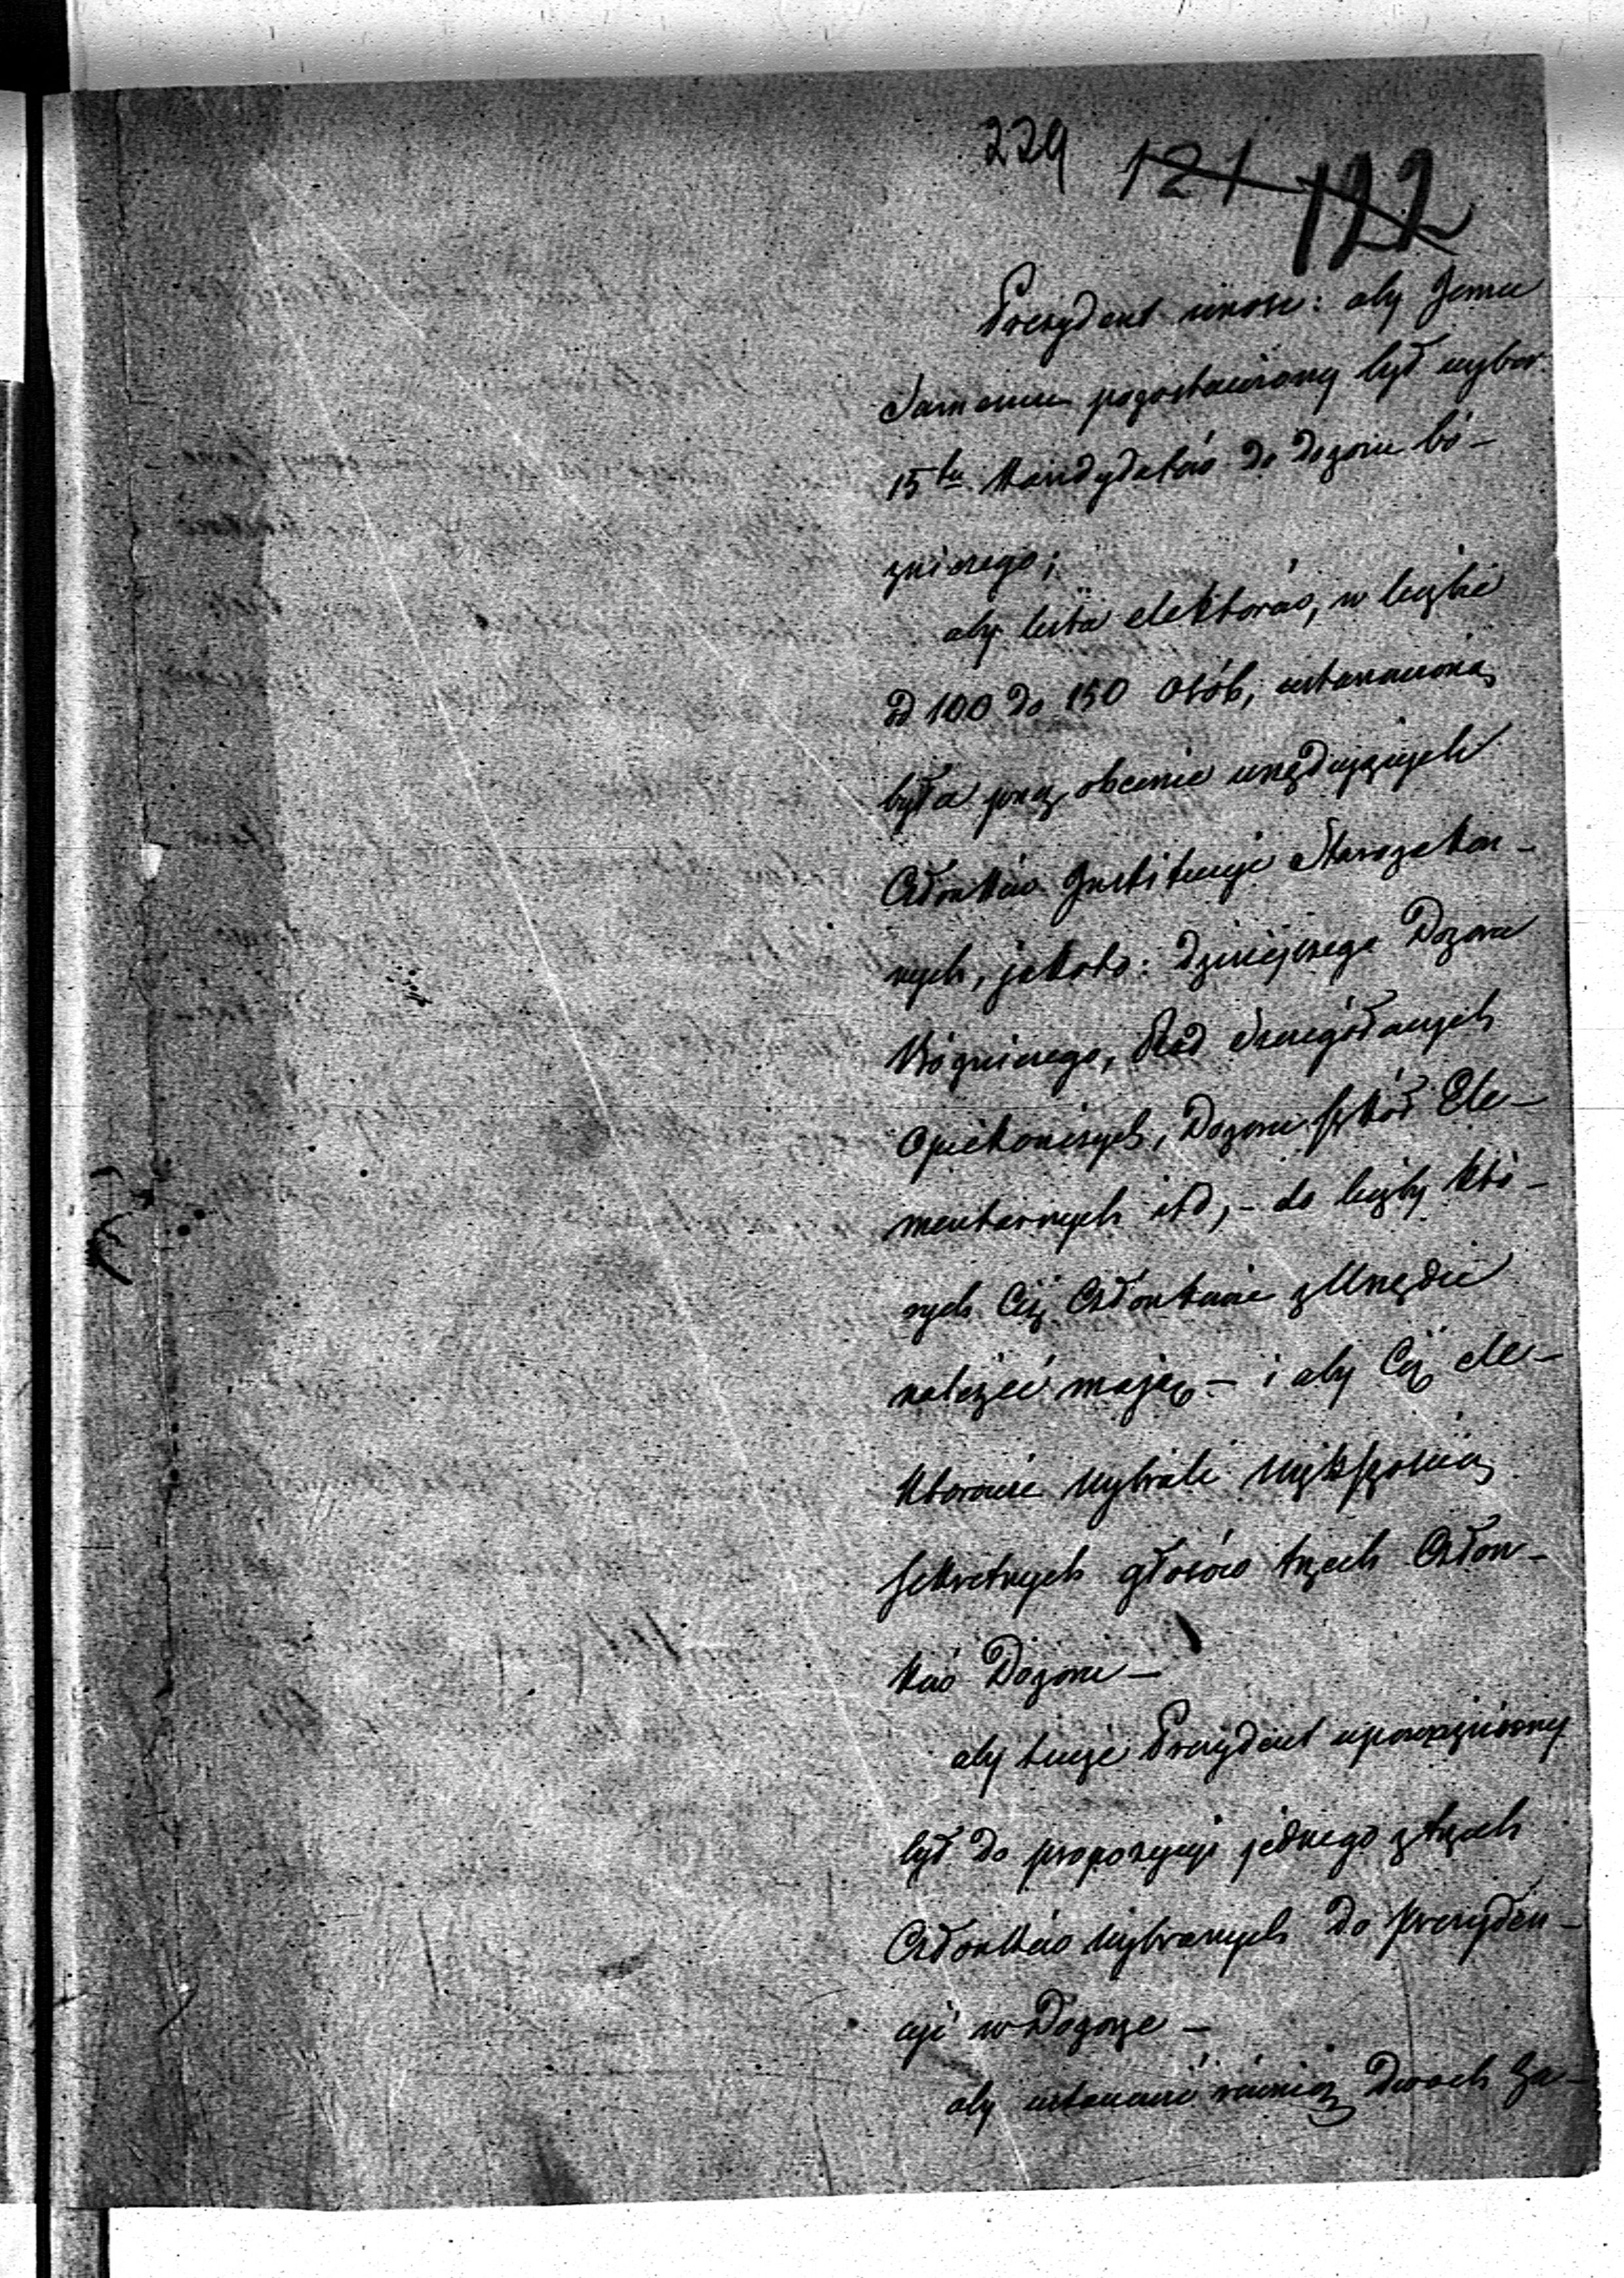 229 121 122
Prezydent wnosi: aby Jemu
Samemu pozostawiony był wybor
15tu Kandydatów do dozoru bó-
zniczego;
aby lista elektorów, w liczbie
od 100 do 150 osób, ustanowioną
była przez obecnie urzędujących
Członków Instituciji Starozakon-
nych, jakoto: dzisiejszego Dozoru
Bózniczego, Rad Szczegółowych
Opiekuńczych, Dozoru szkół Ele-
mentarnych itd, - do liczby któ-
rych Ciż Członkowie z Urzędu
należeć mają - i aby Ciż ele-
ktorowie wybrali większością
sekretnych głosów trzech Człon-
ków Dozoru -
aby tenże Prezydent upoważniony
był do propozycyi jednego z trzech
Członków wybranych do prezyden-
cyi w Dozorze -
aby ustanowić również dwóch Za-